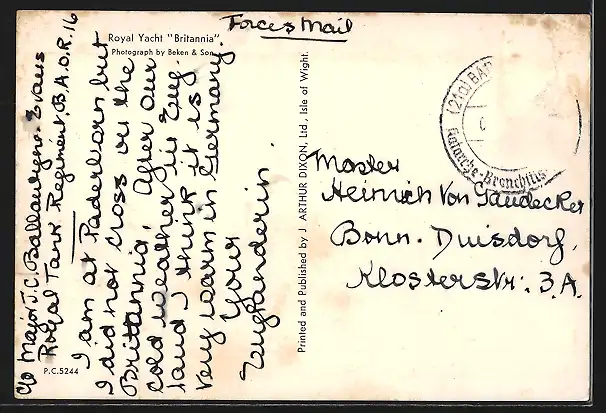 Royal Yacht "Britannia"
Photograph by Beken & Son.
Forces Mail
c/o Major J.C. Ballantyne-Evans
Royal Tank Regiment, B.A.O.R. 16
I am at Paderborn but
I did not cross on the
Britannia. After our
cold weather in Eng-
land I think it is
very warm in Germany.
Your
Engländerin.
P.C.5244
Printed and Published by J ARTHUR DIXON, Ltd., Isle of Wight.
(21a) BAD
Katarrhe-Bronchitis
Master
Heinrich Von Saudecker
Bonn-Duisdorf,
Klosterstr. 3.A.